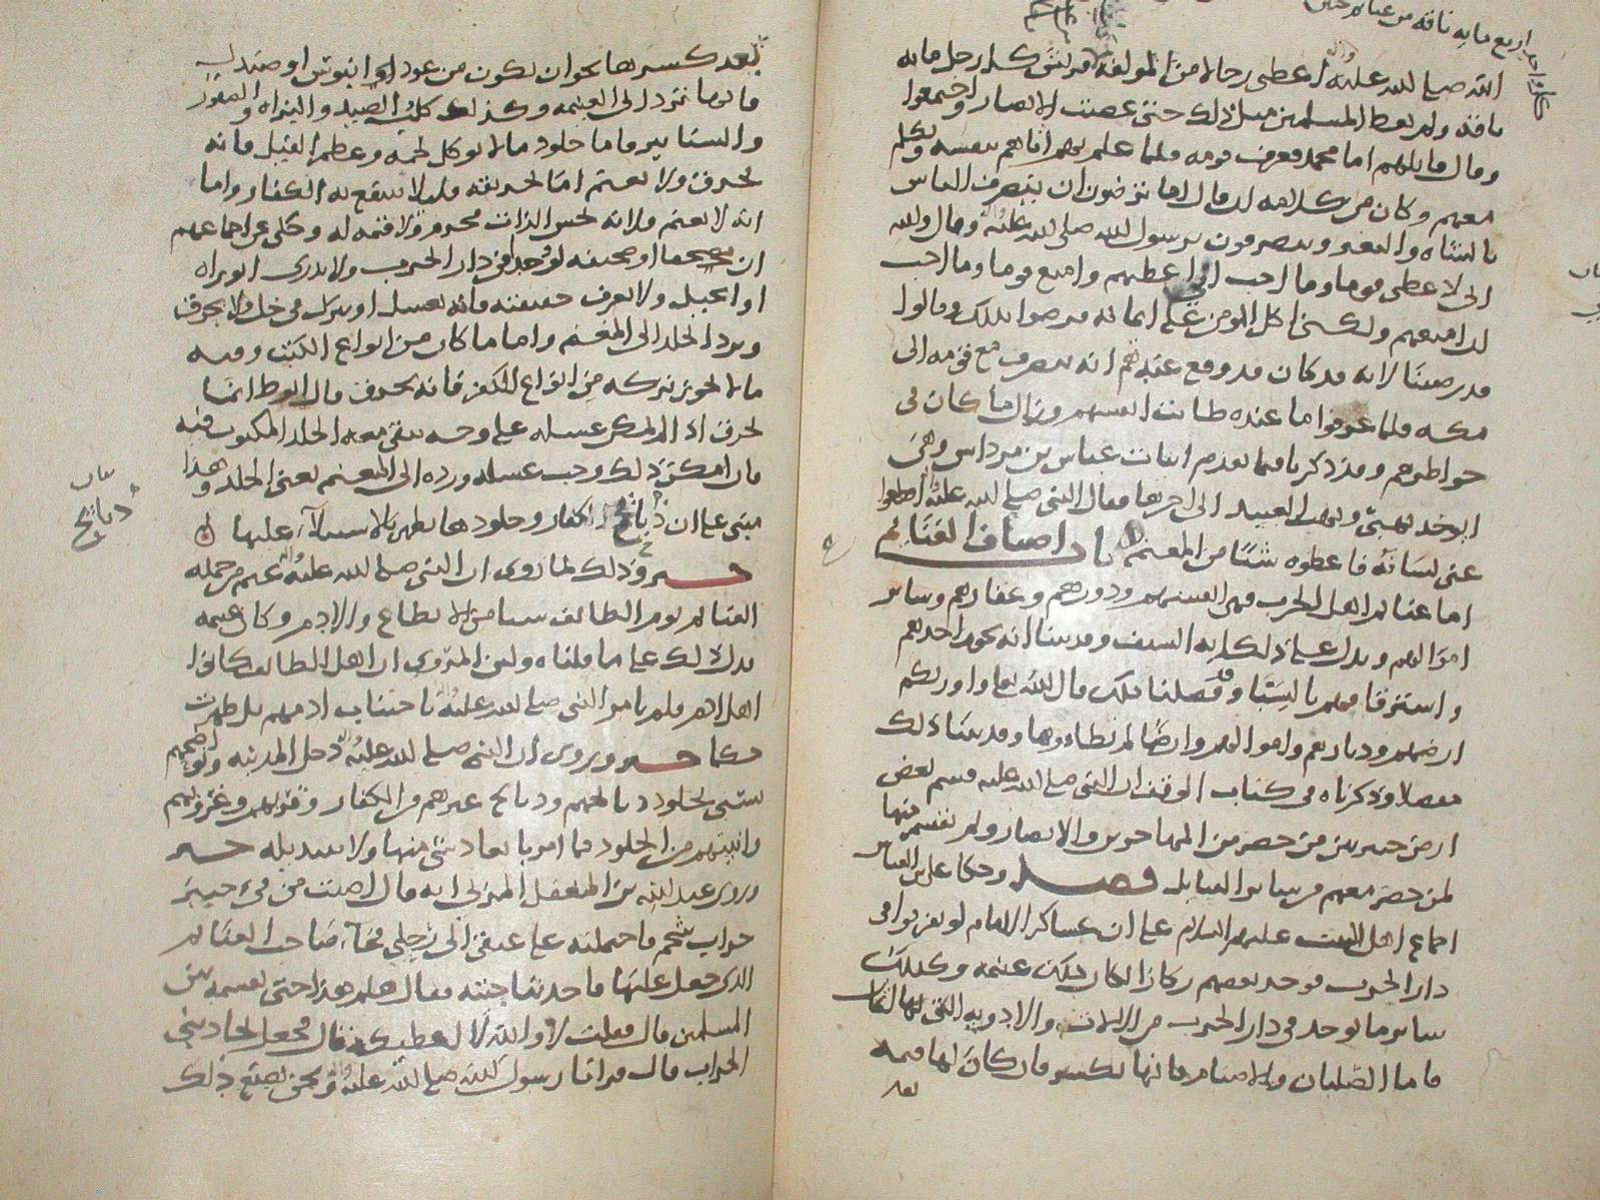 اربع مايه ناقه من غنايم حنين
كل واحد
الله صلى الله عليه أعطى رجالا من المولفة قريش كل رجل مايه
ناقه ولم يعط المسلمين مثل ذلك حتى غضبت الانصار واجتمعوا
وقال قايلهم اما محمد فعرف قومه فلما علم بهم أتاهم بنفسه وتكلم
معهم وكان من كلامه ان قال اما ترضون ان ينصرف الناس
بالشاه والبعير وتنصرفون برسول الله صلى الله عليه وقال والله
انى لا عطى قوما وما احب ان اعطيهم وامنع قوما وما احب
ان امنعهم ولكن اكل المومن على ايمانه فرضوا بذلك وقالوا
قد رضينا لانه قد كان قد وقع عندهم انه ينصرف مع قومه الى
مكه فلما عرفوا ما عنده طابت انفسهم وزال ما كان فى
خواطرهم وقد ذكرنا فيما تقدم ابيات عباس بن مرداس وهى
ايوخذ نهبى ونهب العبيد الى اخرها فقال النبى صلى الله عليه اقطعوا
عنى لسانه فاعطوه شيئا من المغنم باب اصناف الغنايم
اما غنايم اهل الحرب فهى انفسهم ودورهم وعقارهم وساير
اموالهم ويدل على ذلك ايه السيف وقد بينا انه يجوز اخذهم
واسترقاقهم بالسبا وقد فصلنا ذلك قال الله تعالى واورثكم
ارضهم وديارهم واموالهم وارضا لم تطاءوها وقد بينا ذلك
مفصلا وذكرناه فى كتاب الوقف ان النبى صلى الله عليه قسم بعض
ارض خيبر بين من حضر من المهاجرين والانصار ولم يقسم منها
لمن حضر معهم من ساير القبايل فصل وحكا على بن العباس
اجماع اهل البيت عليهم السلام على ان عساكر الامام لو تغربوا فى
دار الحرب فوجد بعضهم ركازا لكان ذلك غنيمه وكذلك
ساير ما يوجد فى دار الحرب من الالات والادويه التى لها اثمان
فاما الصلبان والاصنام فانها تكسر فان كان لها قيمه
بعد
بعد كسرها نحو ان تكون من عود او ابنوس او صندل
فانها ترد الى الغنيمه وكذلك كلب الصيد والبزاه والصقور
والسنانير واما جلود ما لا يوكل لحمه وعظم الفيل فانه
يحرق ولا يغنم اما تحريقه فليلا ينتفع به الكفار واما
انه لا يغنم فلانه نجس الذات محرم ولا قيمه له وحكى عن اجماعهم
ان مصحفا او صحيفه لو وجد فى دار الحرب ولا يدرى التوراه
او انجيل ولا يعرف حقيقته فانه يغسل او يترك فى خل ولا يحرق
ويرد الجلد الى المغنم واما ما كان من انواع الكتب وفيه
ما لا يجوز تركه من انواع الكفر فانه يحرق قال ابو ط انما
يحرق اذا لم يمكن غسله على وجه يبقى معه الجلد المكتوب فيه
فان امكن ذلك وجب غسله ورده الى المغنم يعنى الجلد وهذا
مبنى على ان ذبايح الكفار وجلودها تطهر بالاستيلاء عليها
بيان
ذبايح
خبر وذلك لما روى ان النبى صلى الله عليه غنم من جمله
الغنايم يوم الطايف شيا من الانطاع والادم وكان غنيمه
يدل ذلك على ما قلناه ولين المروى ان اهل الطايف كانوا
اهل ادم فلم يامر النبى صلى الله عليه باجتناب ادمهم بل طهرت
حكما خبر وروى ان النبى صلى الله عليه دخل المدينه ونواضحهم
تسنى بجلود ذبايحهم وذبايح غيرهم من الكفار وقربهم وغزوهم
وانيتهم من الجلود فما امر باعادة شى منها ولا تبديله خبر
وروى عبد الله بن المغفل المزنى انه قال اصبت من فى خيبر
جراب شحم فاحتملته على عنقى الى رحلى فجاء صاحب الغنايم
الذى جعل عليها فاخذ بناحيته فقال هلم هذا حتى نقسمه بين
المسلمين قال فقلت لا والله لا اعطيكه قال فجعل يجاذبنى
الجراب قال فراانا رسول الله صلى الله عليه ونحن نصنع ذلك